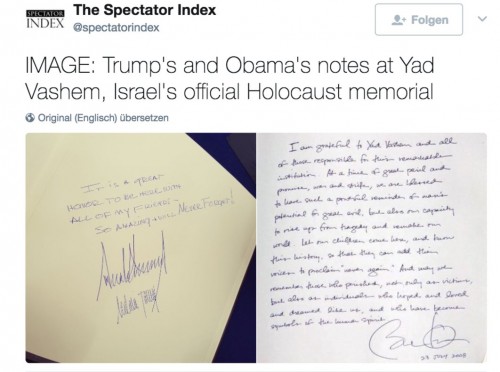 SPECTATOR
INDEX
The Spectator Index
@spectatorindex
Folgen
IMAGE: Trump's and Obama's notes at Yad
Vashem, Israel's official Holocaust memorial
Original (Englisch) übersetzen
IT IS A GREAT
HONOR TO BE HERE WITH
ALL OF MY FRIENDS -
SO AMAZING + WILL NEVER FORGET!
I am grateful to Yad Vashem and all
of those responsible for this remarkable
institution. At a time of great peril and
promise, war and strife, we are blessed
to have such a powerful reminder of man's
potential for great evil, but also our capacity
to rise up from tragedy and remake our
world. Let our children come here, and know
this history, so that they can add their
voices to proclaim "never again." And may we
remember those who perished, not only as victims,
but also as individuals who hoped and loved
and dreamed like us, and who have become
symbols of the human spirit.
23 JULY 2008